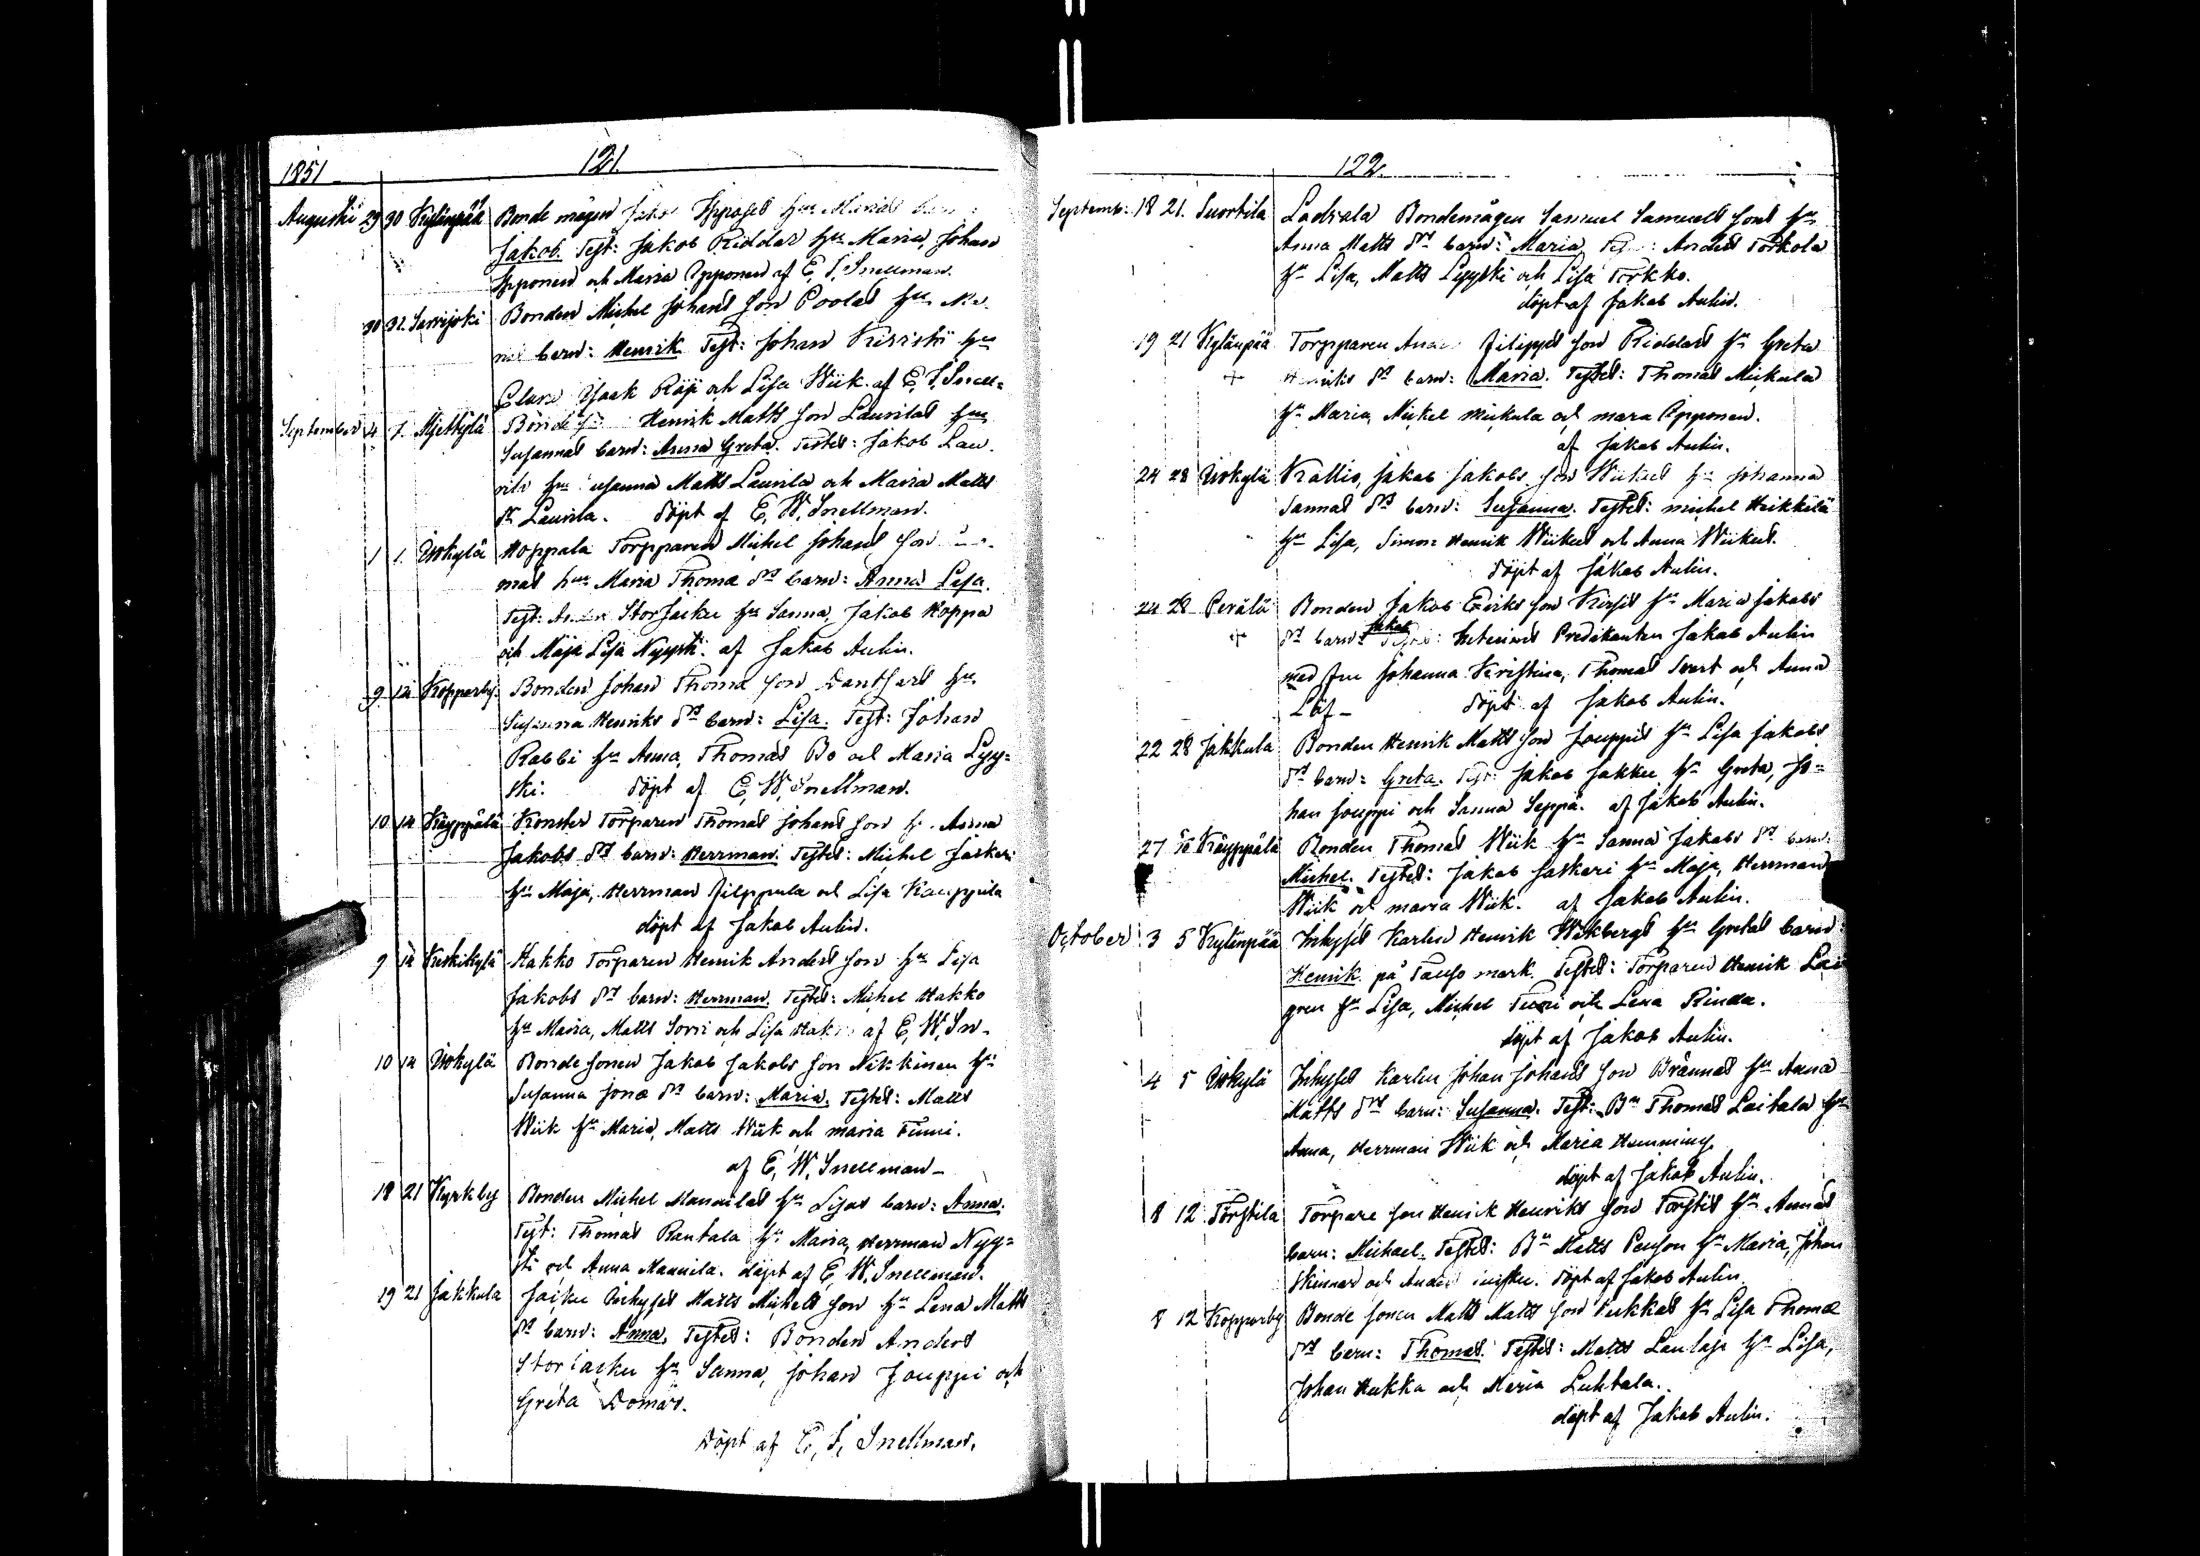 1851 121.
Augusti 29 30 Kylänpää Bonde mågen Jakob Ipposes hu Marias barn:
Jakob. Test: Jakob Riddar hu Maria Johan
Ipponen och Maria Ipponen af E. S. Snellman.
30 31 Sarvijoki Bonden Michel Johans son hu
barn: Henrik Test: Johan hu
Isaak Röji och Lisa Wiik af E. S. Snell=
September 4 7. Mjetkylä Bonde Henrik Matts son Laurilas hu
Susannas barn: Anna Greta. Testes: Jakob Lau
rila hu Susanna Matts Laurila och Maria Matts
dr Laurila. döpt af E. W. Snellman.
1 1. Isokylä Koppala Torpparen Michel Johans son
mas hus Maria Thomæ dr barn: Anna Lisa.
Test: StorJacku hu Sanna, Jakob Koppa
och Maja Lisa Nyysti. af Jakob Aulin.
9. 14 Kopparby. Bonden Johan Thomæ son hu
Susanna Henriks dr barn: Lisa. Test: Johan
Rabbi hu Anna, Thomas Bo och Maria Lyy=
ski. döpt af E. W. Snellman.
10 14 Käyppälä Torparen Thomas Johans son hu Anna
Jakobs dr barn: Herrman. Testes: Michel Jaskari
hu Maja, Herrman Filppula och Lisa Kauppila
döpt af Jakob Aulin.
9 14 Keskikylä Hakko Torparen Henrik Anders son hu Lisa
Jakobs dr barn: Herrman. Testes: Michel Hakko
hu Maria, Matts Sorri och Lisa Hakko af E. W. Sn-
10 14 Isokylä Bonde sonen Jakob Jakobs son Nikkinen hu
Susanna Jonæ dr barn: Maria. Testes: Matts
Wiik hu Maria, Matts Wiik och Maria
af E. W. Snellman-
18 21 Kyrkby Bonden Michel Mannilas hu Lisas barn: Anna.
Test: Thomas Rantala hu Maria, Herrman Nyy=
sti och Anna Mannila. döpt af E. W. Snellman.
19 21 Jakkula Inhyses Matts Michels son hu Lena Matts
dr barn: Anna. Testes: Bonden Anders
Storjacku hu Sanna, Johan Jouppi och
Greta Domars.
Döpt af E. S. Snellman.
122.
Septemb: 18 21. Suortila Bondemågen Samuel Samuels sons hu
Anna Matts dr barn: Maria Test: Anders Torkola
hu Lisa, Matts Lyyski och Lisa Torkko.
döpt af Jakob Aulin.
19 21 Kylänpää Torpparen Filipps son Riddars hu Greta
+ Henriks dr barn: Maria. Testes: Thomas Mickala
hu Maria, Mickel Mickala och Maria Ipponen.
af Jakob Aulin.
24 28 Isokylä Jakob Jakobs son hu Johanna
Sannas dr barn: Susanna. Testes: Michel Heikkilä
hu Lisa, Simon Henrik och Anna
döpt af Jakob Aulin.
24 28 Perälä Bonden Jakob Eriks son hu Maria Jakobs
+ dr barn: Jakob Testes: Interims Predikanten Jakob Aulin
med fru Johanna Kristina, Thomas Svart och Anna
Löf- döpt af Jakob Aulin.
22 28 Jakkula Bonden Henrik Matts son Jouppis hu Lisa Jakobs
dr barn: Greta. Test: Jakob Jakku hu Greta, Jo=
han Jouppi och Sanna Seppä. af Jakob Aulin.
27 Käyppälä Bonden Thomas Wiik hu Sanna Jakobs dr barn:
Michel. Testes: Jakob Jaskari hu Maja, Herrman
Wiik och Maria Wiik. af Jakob Aulin.
October 3 5 Kylänpää Inhyses Karlen Henrik Wikbergs hu Gretas barn:
Henrik på mark. Testes: Torparen Henrik
gren hu Lisa, Michel och Lena Rinda.
döpt af Jakob Aulin.
4 5 Isokylä Inhyses Karlen Johan Johans son Brännas hu Anna
Matts drs barn: Susanna. Test: Bn Thomas Laitala hu
Anna, Herrman Wiik och Maria Hemming
döpt af Jakob Aulin.
8 12 Törstila Torpare son Henrik Henriks son Törstis hu Annas
barn: Michael. Testes: Bn Matts Penson hu Maria, Johan
Skinnar och döpt af Jakob Aulin.
8 12 Kopparby Bonde sonen Matts Matts son Hukkas hu Lisa Thomæ
dr barn: Thomas. Testes: Matts Laulaja hu Lisa,
Johan Hukka och Maria Luhtala.
döpt af Jakob Aulin.